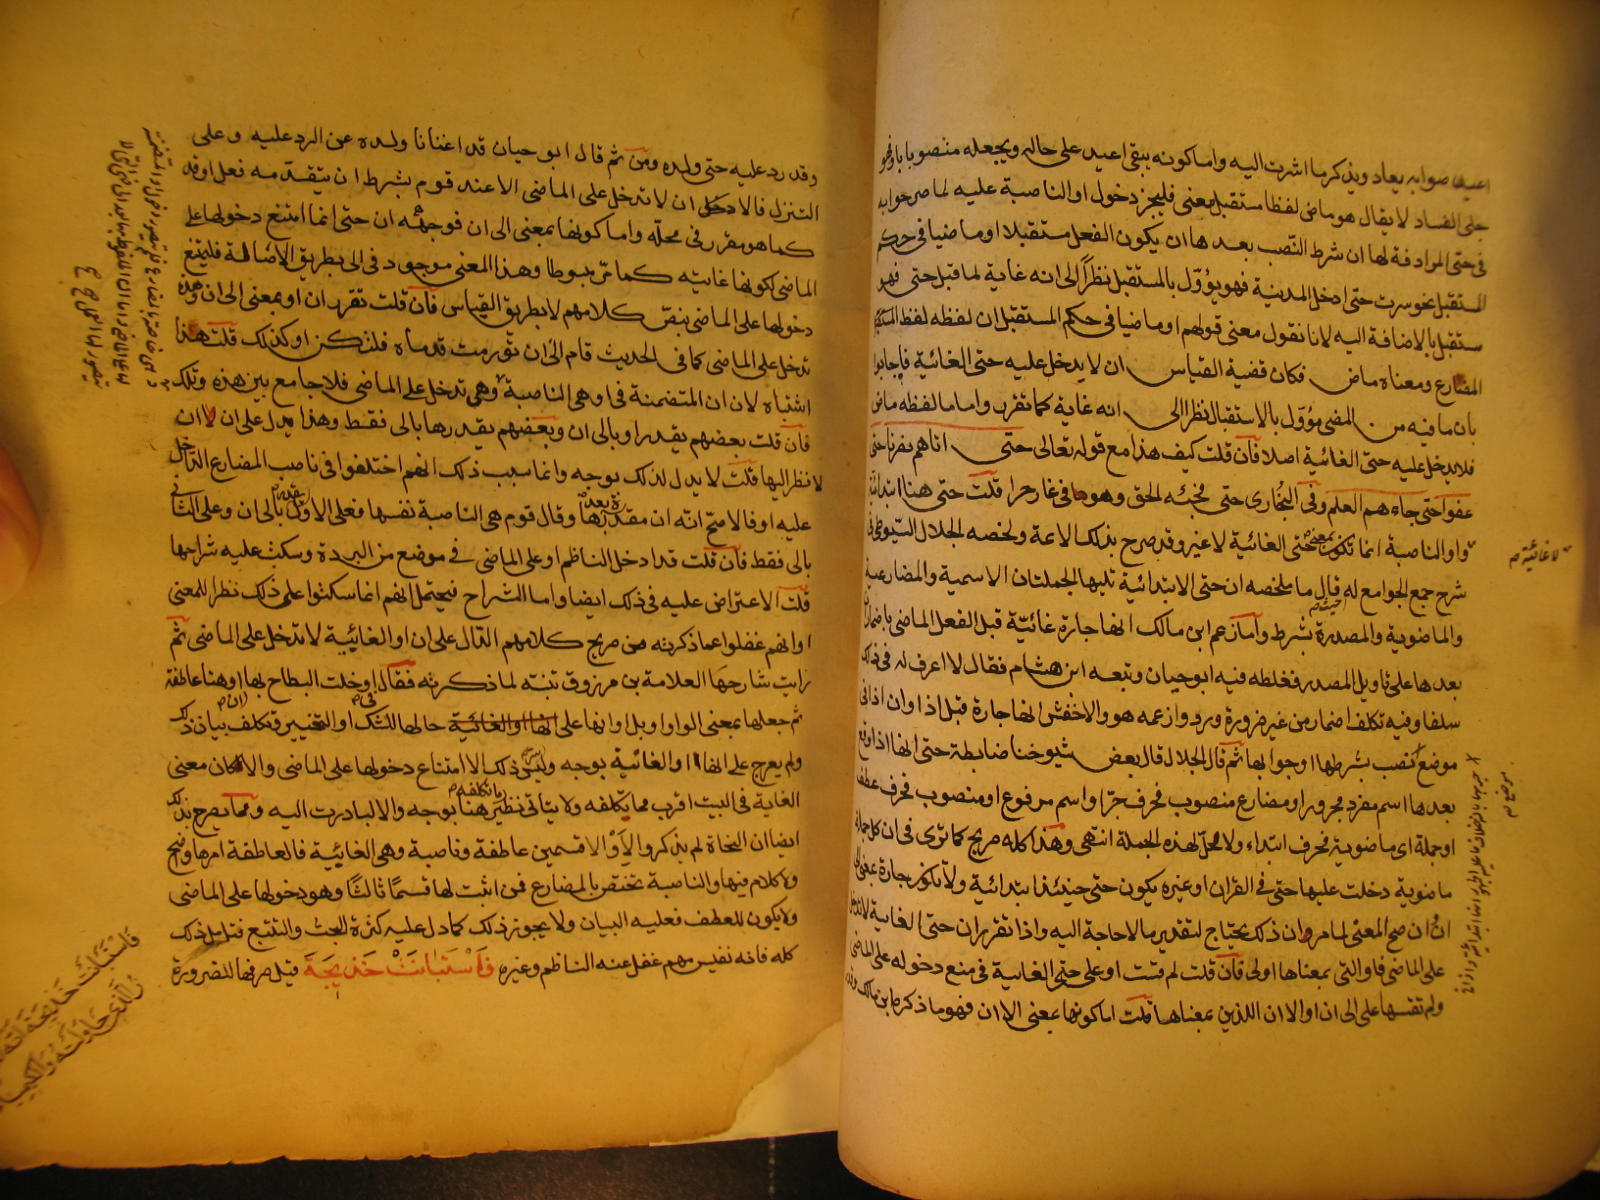 اعيد صوابه يعاد ويذكر ما اشرت اليه واما كونه يبقى اعيد على حاله ويجعله منصوبا باو فهو
جلى الفساد لا يقال هو ماض لفظا مستقبل معنى فليجز دخول او الناصبة عليه لما صرحوا به
فى حتى المرادفة لها ان شرط النصب بعدها ان يكون الفعل مستقبلا او ماضيا فى حكم
المستقبل نحو سرت حتى ادخل المدينة فهو يؤوّل بالمستقبل نظرا الى انه غاية لما قبل حتى فهو
مستقبل بالاضافة اليه لانا نقول معنى قولهم او ماضيا فى حكم المستقبل ان لفظه لفظ المستقبل
المضارع ومعناه ماض فكان قضية القياس ان لا يدخل عليه حتى الغائية فاجابوا
بان ما فيه من المضى مؤوّل بالاستقبال نظرا الى انه غاية كما تقرر واما ما لفظه ماض
فلا يدخل عليه حتى الغائية اصلا فان قلت كيف هذا مع قوله تعالى حتى اتاهم نصرنا حتى
عفوا حتى جاءهم العلم وفى البخارى حتى فجئه الحق وهو فى غار حرا قلت حتى هنا ابتدائية
واو الناصبة انما تكون بمعنى حتى الغائية لا غير وقد صرح بذلك الائمة ولخصه الجلال السيوطى فى
شرح جمع الجوامع له حيث قال ما ملخصه ان حتى الابتدائية تليها الجملتان الاسمية والمضارعية
والماضوية والمصدرة بشرط واما زعم ابن مالك انها جارة غائيّة قبل الفعل الماضى باضمار ان
بعدها على تاويل المصدر فغلطه فيه ابو حيان وتبعه ابن هشام فقال لا اعرف له فى ذلك
سلفا وفيه تكلف اضمار من غير ضرورة ورد وازعمه هو والاخفش انها جارة قبل اذا وان اذا فى
موضع نصب بشرطها او جوابها ثم قال الجلال قال بعض شيوخنا ضابطة حتى انها اذا وقع
بعدها اسم مفرد مجرور او مضارع منصوب فحرف جرّ او اسم مرفوع او منصوب فحرف عطف
او جملة اى ماضوية فحرف ابتداء ولا محل لهذه الجملة انتهى وهذا كله صريح كما ترى فى ان كل جملة
ماضوية دخلت عليها حتى فى القران او غيره يكون حتى حينئذ ابتدائية ولا تكون جارة بمعنى الى
ان وان صح المعنى لما مر وان ذلك يحتاج لتقدير ما لا حاجة اليه واذا تقرر ان حتى الغاىية لا تدخل
على الماضى فاو التى بمعناها اولى فان قلت لم قست او على حتى الغاىية فى منع دخوله على الماضى
ولم تقسها على الى ان او الا ان اللذين بمعناها قلت اما كونها بمعنى الا ان فهو ما ذكره ابن مالك وقد
لا غائية صح
موضع صح
وقد رد عليه حتى ولده ومن ثم قال ابو حيان قد اغنانا ولده عن الرد عليه وعلى
التنزل فالا دخل ان لا تدخل على الماضى الا عند قوم بشرط ان يتقدمه فعل او قد
كما هو مقرر فى محلّه واما كونها بمعنى الى ان فوجهه ان حتى انما امتنع دخولها على
الماضى لكونها غائيه كما مرّ مبسوطا وهذا المعنى موجود فى الى بطريق الأصالة فليمتنع
دخولها على الماضى بنصّ كلامهم لا بطريق القياس فان قلت تقرر ان او بمعنى الى ان وهذه
تدخل على الماضى كما فى الحديث قام الى ان تورمت قدماه فلتكن او كذلك قلت هذا
اشتباه لان ان المتضمنة فى او هى الناصبة وهى تدخل على الماضى فلا جامع بين هذه وتلك
فان قلت بعضهم يقدر او بالى ان وبعضهم يقدرها بالى فقط وهذا يدل على ان لا ان
لا نظر اليها قلت لا يدل لذلك بوجه وانما سبب ذلك انهم اختلفوا فى ناصب المضارع الداخل
عليه او فالاصح انه ان مقدرة بعدها وقال قوم هى الناصبة نفسها فعلى الاول يقدر بالى ان وعلى الثانى
بالى فقط فان قلت قد ادخل الناظم او على الماضى فى موضع من البردة وسكت عليه شراحها
قلت الاعتراض عليه فى ذلك ايضا واما الشراح فيحتمل انهم انما سكتوا على ذلك نظرا للمعنى
او انهم غفلوا عما ذكرته من صريح كلامهم الدال على ان او الغائيية لا تدخل على الماضى ثم
رايت شارحها العلامة بن مرزوق تنبه لما ذكرته فقال او خلت البطاح بها او هنا عاطفة
ثم جعلها بمعنى الواو او بل او انها على حالها للشك او التخيير فى تكلف بيان ذلك
ولم يعرج على انها او الغائية بوجه وليس ذلك الا امتناع دخولها على الماضى والا كان معنى
الغاية فى البيت اقرب مما يتكلفه ولا يتاتى نظير ما تكلفه هنا بوجه والا لبادرت اليه ومما يصرح بذلك
ايضا ان النحاة لم يذكروا لاو الا قسمين عاطفة وناصبة وهى الغائيية فالعاطفة امرها واضح
ولا كلام فيها والناصبة تختص بالمضارع فمن اثبت لها قسما ثالثا وهو دخولها على الماضى
ولا يكون للعطف فعليه البيان ولا يجوز ذلك كما دل عليه كثرة البحث والتتبع فتامل ذلك
كله فانه نفيس مهم غفل عنه الناظم وغيره فاستبانت خديجة قيل صرفها للضرورة
فاستبانت خديجة انه
ز الذى حاولته والكيميا